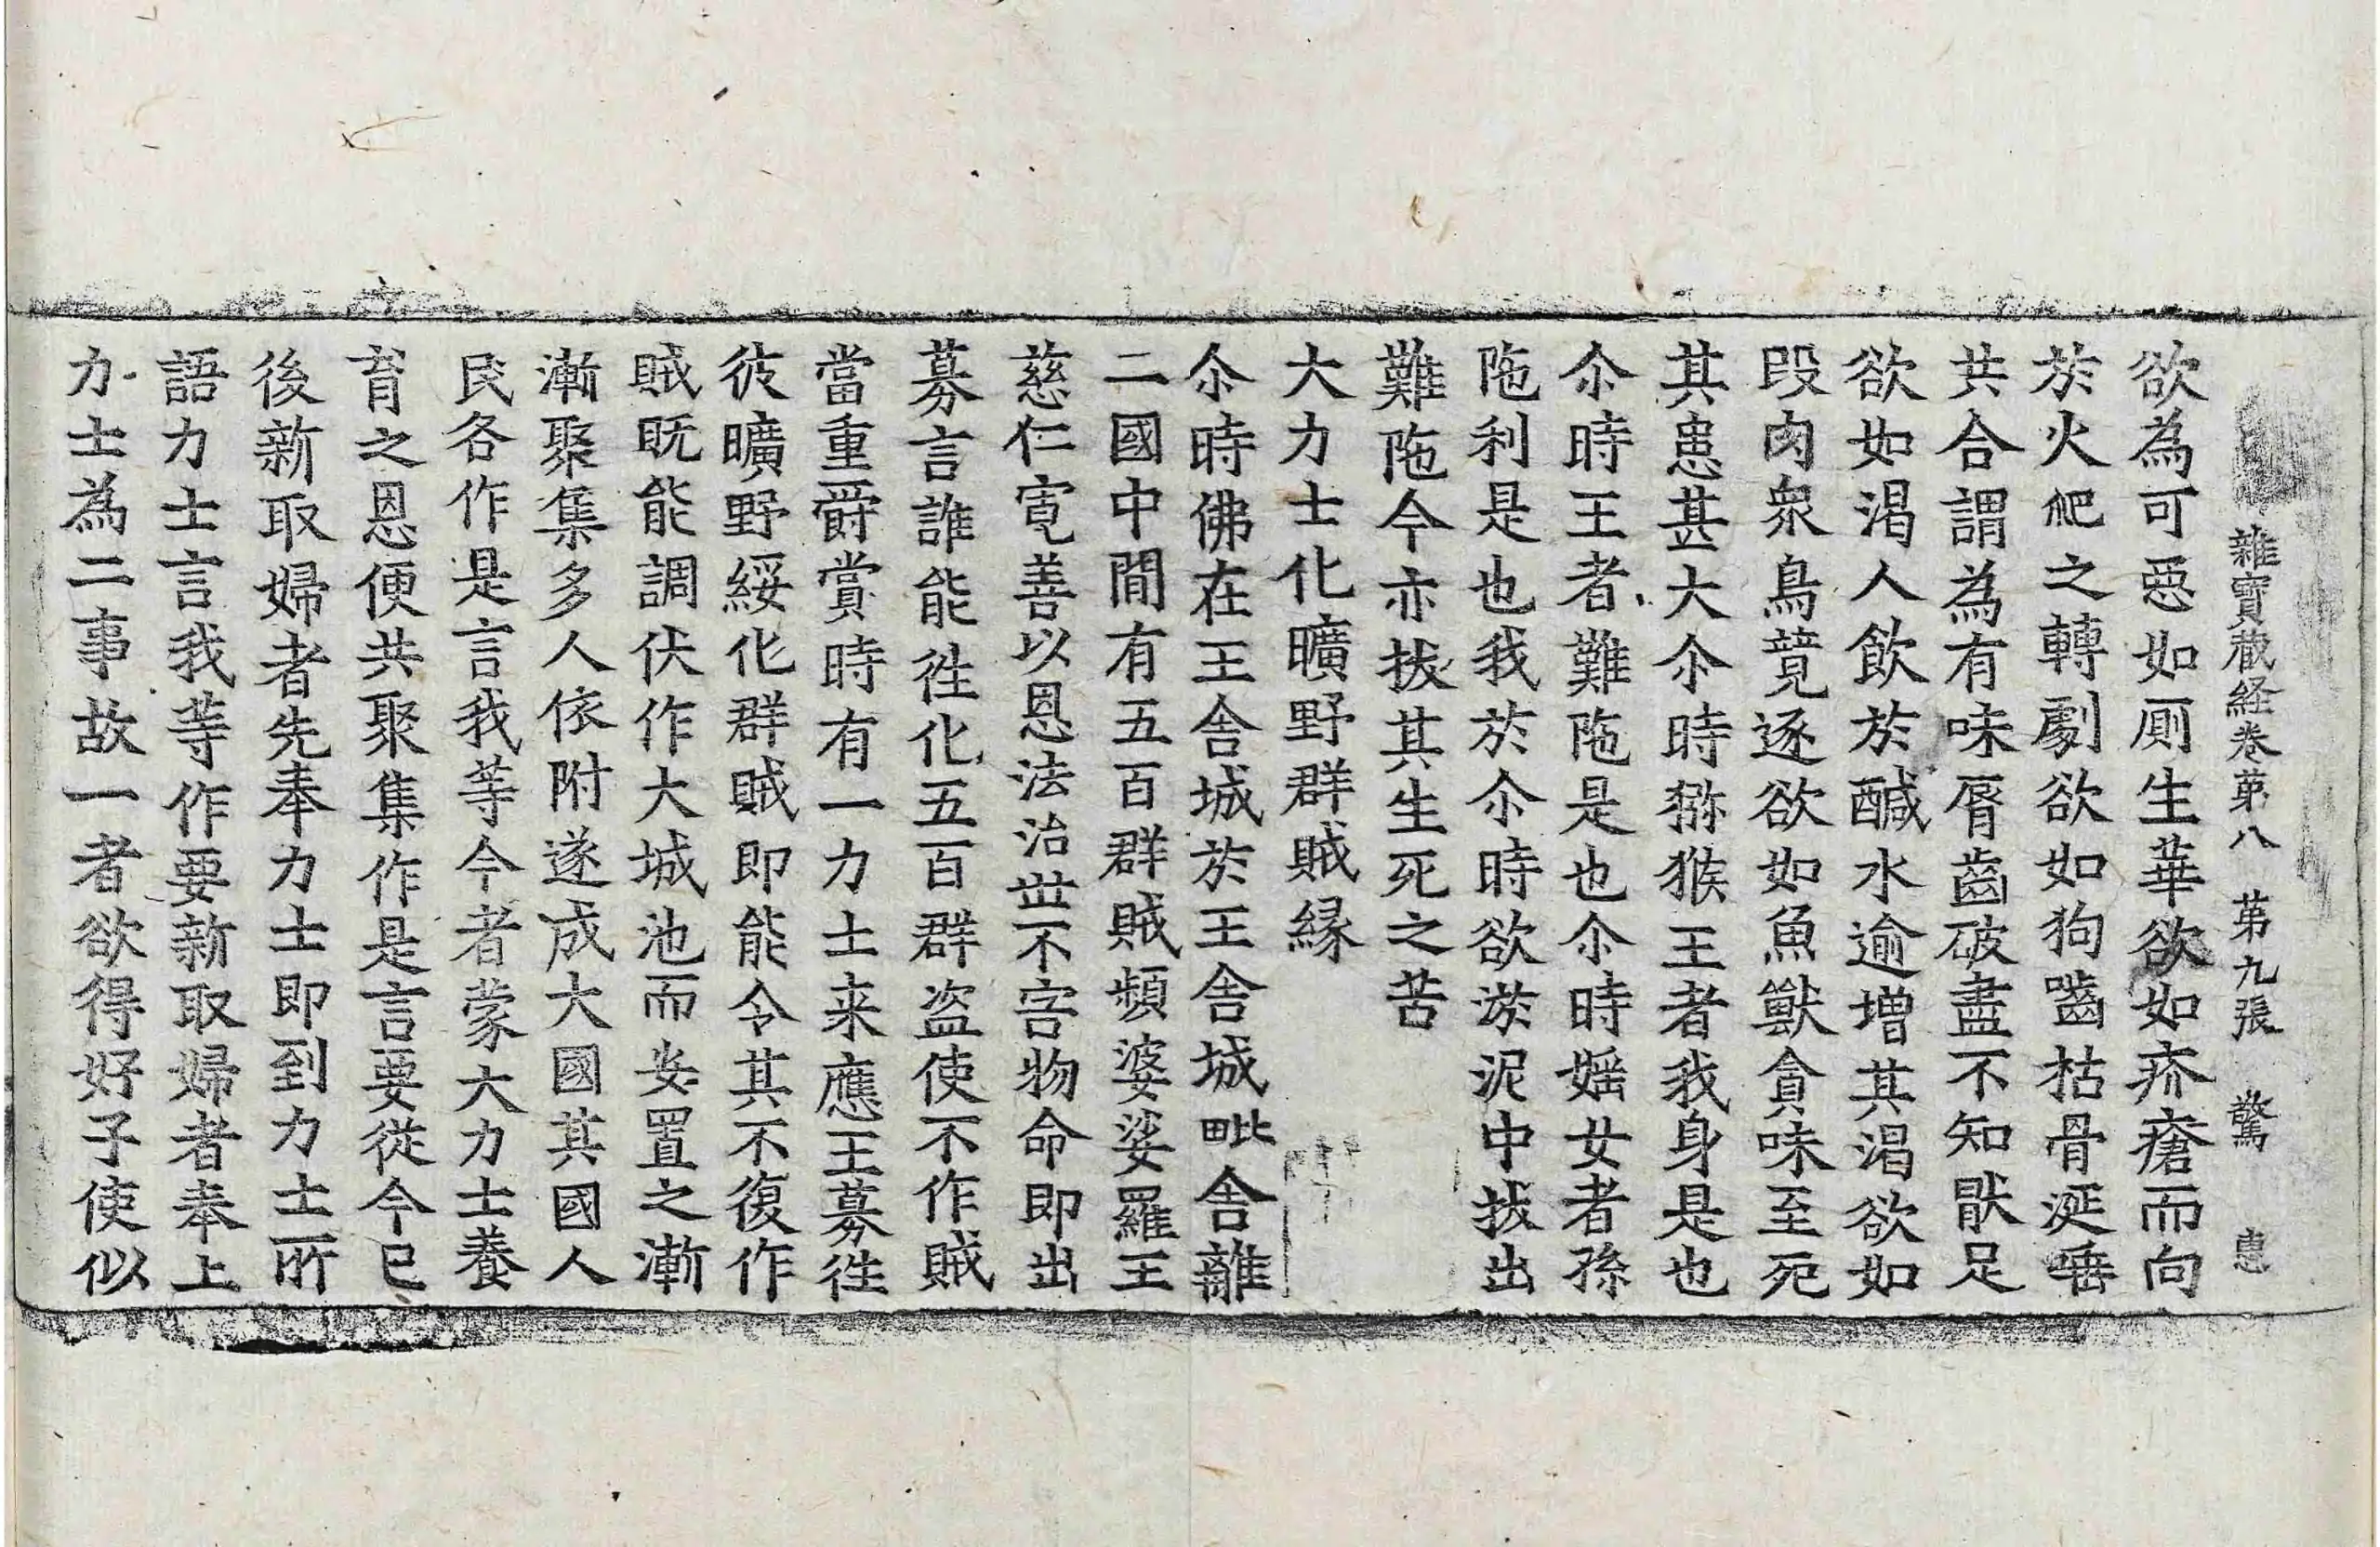 雜寶蔵経卷苐八 苐九張 驚 恵
欲為可惡如厠生華欲如疥瘡而向
於火爬之轉劇欲如狗嚙枯骨涎唾
共合謂為有味脣齒破盡不知猒足
欲如渴人飲於醎水逾增其渴欲如
段肉衆鳥競逐欲如魚獸貪味至死
其患甚大尒時獼猴王者我身是也
尒時王者難陁是也尒時婬女者孫
陁利是也我於尒時欲淤泥中拔出
難陁今亦拔其生死之苦
大力士化曠野群賊緣
尒時佛在王舍城於王舍城毗舍離
二國中間有五百群賊頻婆娑羅王
慈仁寬善以恩法治世不害物命即出
募言誰能徃化五百群盜使不作賊
當重爵賞時有一力士来應王募徃
彼曠野綏化群賊即能令其不復作
賊既能調伏作大城池而安置之漸
漸聚集多人依附遂成大國其國人
民各作是言我等今者蒙大力士養
育之恩便共聚集作是言要從今已
後新取婦者先奉力士即到力士所
語力士言我等作要新取婦者奉上
力士為二事故一者欲得好子使似